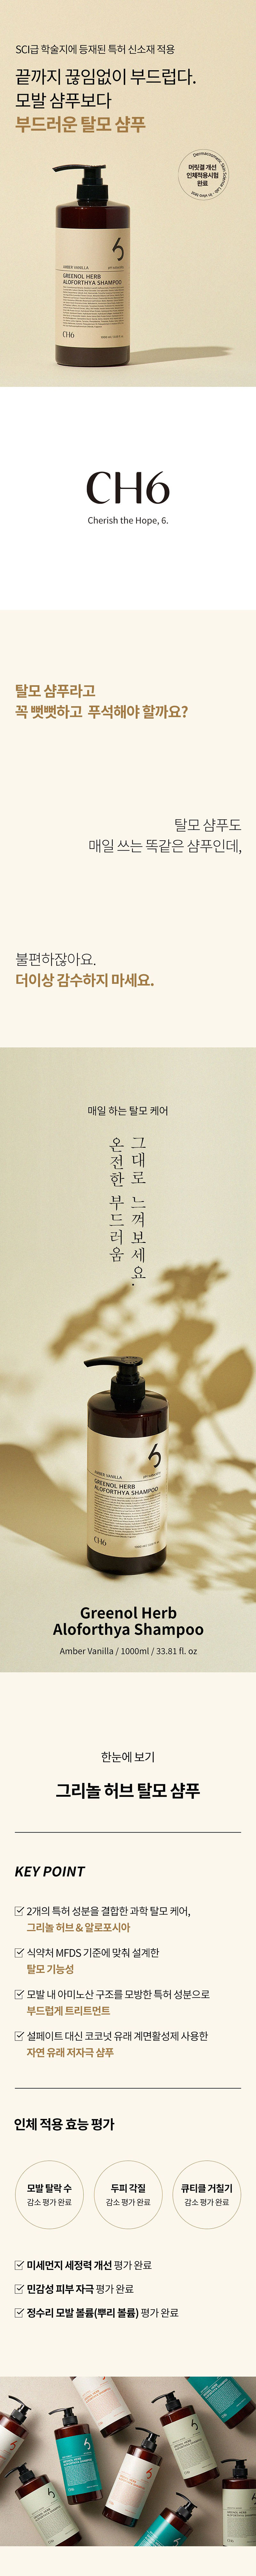 SCI급 학술지에 등재된 특허 신소재 적용
끝까지 끊임없이 부드럽다.
모발 샴푸보다
부드러운 탈모 샴푸
머릿결 개선
인체적용시험
완료
AMBER VANILLA
GREENOL HERB
ALOFORTHYA SHAMPOO
CH6
CH6
Cherish the Hope, 6.
탈모 샴푸라고
꼭 뻣뻣하고 푸석해야 할까요?
탈모 샴푸도
매일 쓰는 똑같은 샴푸인데,
불편하잖아요.
더이상 감수하지 마세요.
매일 하는 탈모 케어
그대로 느껴보세요.
온전한 부드러움
AMBER VANILLA
GREENOL HERB
ALOFORTHYA SHAMPOO
CH6
Greenol Herb
Aloforthya Shampoo
Amber Vanilla / 1000ml / 33.81 fl. oz
한눈에 보기
그리놀 허브 탈모 샴푸
KEY POINT
2개의 특허 성분을 결합한 과학 탈모 케어,
그리놀 허브 & 알로포시아
식약처 MFDS 기준에 맞춰 설계한
탈모 기능성
모발 내 아미노산 구조를 모방한 특허 성분으로
부드럽게 트리트먼트
설페이트 대신 코코넛 유래 계면활성제 사용한
자연 유래 저자극 샴푸
인체 적용 효능 평가
모발 탈락 수
감소 평가 완료
두피 각질
감소 평가 완료
큐티클 거칠기
감소 평가 완료
미세먼지 세정력 개선 평가 완료
민감성 피부 자극 평가 완료
정수리 모발 볼륨(뿌리 볼륨) 평가 완료